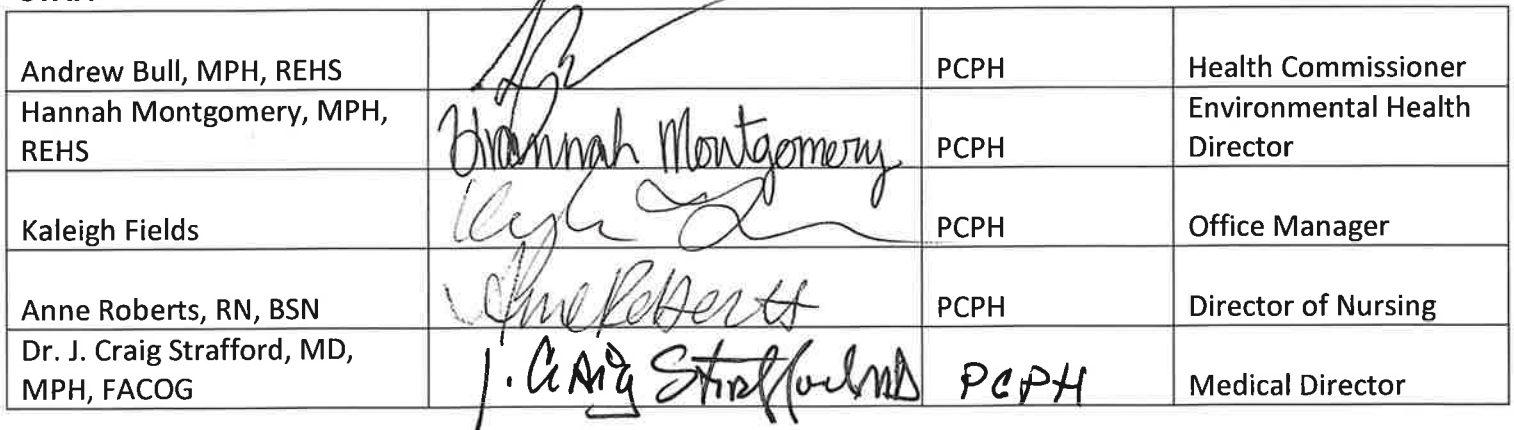 Andrew Bull, MPH, REHS PCPH Health Commissioner
Hannah Montgomery, MPH, Environmental Health
REHS Hannah Montgomery PCPH Director
Kaleigh Fields PCPH Office Manager
Anne Roberts, RN, BSN Anne Roberts PCPH Director of Nursing
Dr. J. Craig Strafford, MD,
MPH, FACOG J. Craig Strafford MD PCPH Medical Director